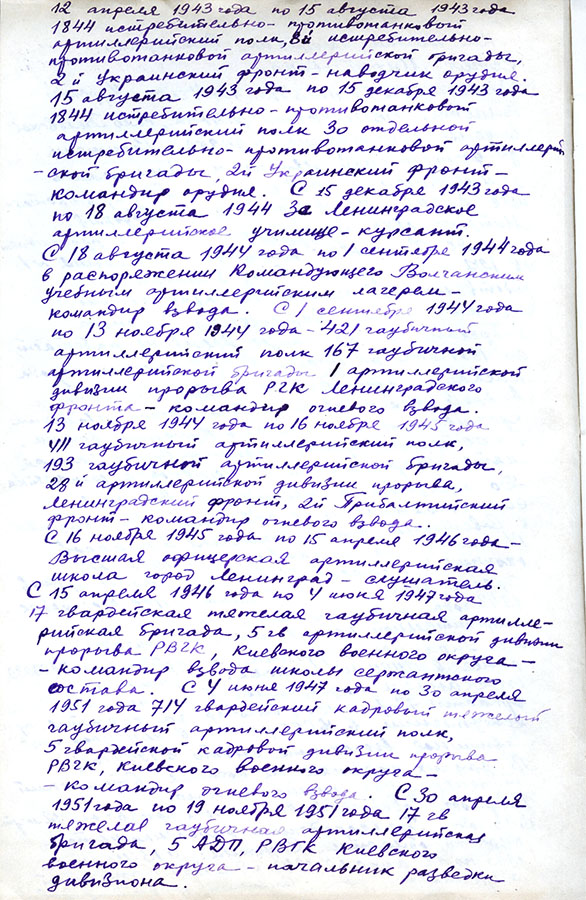 12 апреля 1943 года по 15 августа 1943 года
1844 истребительно-противотанковый
артиллерийский полк, истребительно-
противотанковой артиллерийской бригады,
2й Украинский фронт - наводчик орудия.
15 августа 1943 года по 15 декабря 1943 года
1844 истребительно-противотанковой
артиллерийский полк 30 отдельной
истребительно-противотанковой артиллерий
-ской бригады, 2й Украинский фронт -
командир орудия. С 15 декабря 1943 года
по 18 августа 1944 3е Ленинградское
артиллерийское училище - курсант.
С 18 августа 1944 года по 1 сентября 1944 года
в распоряжении Командующего Волчанским
учебным артиллерийским лагерем -
командир взвода. С 1 сентября 1944 года
по 13 ноября 1944 года - 421 гаубичный
артиллерийский полк 167 гаубичной
артиллерийской бригады 1 артиллерийской
дивизии прорыва РГК Ленинградского
фронта - командир огневого взвода.
13 ноября 1944 года по 16 ноября 1945 года
гаубичный артиллерийский полк,
193 гаубичной артиллерийской бригады,
28й артиллерийской дивизии прорыва,
Ленинградский фронт, 2й Прибалтийский
фронт - командир огневого взвода.
С 16 ноября 1945 года по 15 апреля 1946 года -
Высшая офицерская артиллерийская
школа город Ленинград - слушатель.
С 15 апреля 1946 года по 4 июня 1947 года
17 гвардейская тяжелая гаубичная артилле-
рийская бригада, 5 гв артиллерийской дивизии
прорыва РВГК, Киевского военного округа -
- командир взвода школы сержантского
состава. С 4 июня 1947 года по 30 апреля
1951 года 714 гвардейский кадровый тяжелый
гаубичный артиллерийский полк,
5 гвардейской кадровой дивизии прорыва
РВГК, Киевского военного округа -
- командир огневого взвода. С 30 апреля
1951 года по 19 ноября 1951 года 17 гв
тяжелая гаубичная артиллерийская
бригада, 5 АДП, РВГК Киевского
военного округа - начальник разведки
дивизиона.